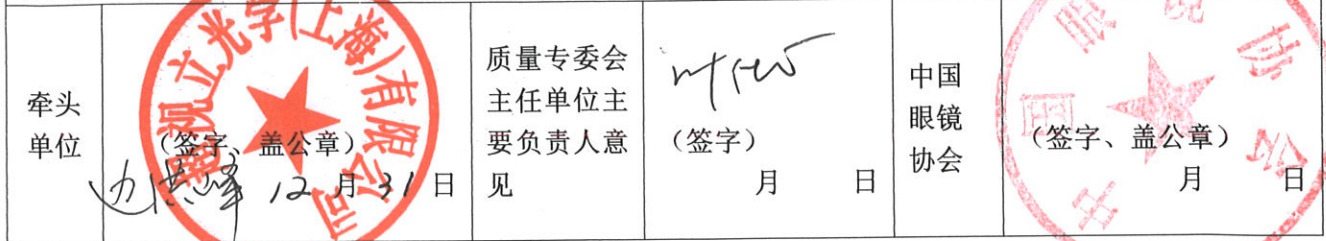 牵头
单位
视立光学(上海)有限公司
(签字、盖公章)
12月31日
质量专委会
主任单位主
要负责人意
见
(签字)
月 日
中国
眼镜
协会
中国眼镜协会
(签字、盖公章)
月 日